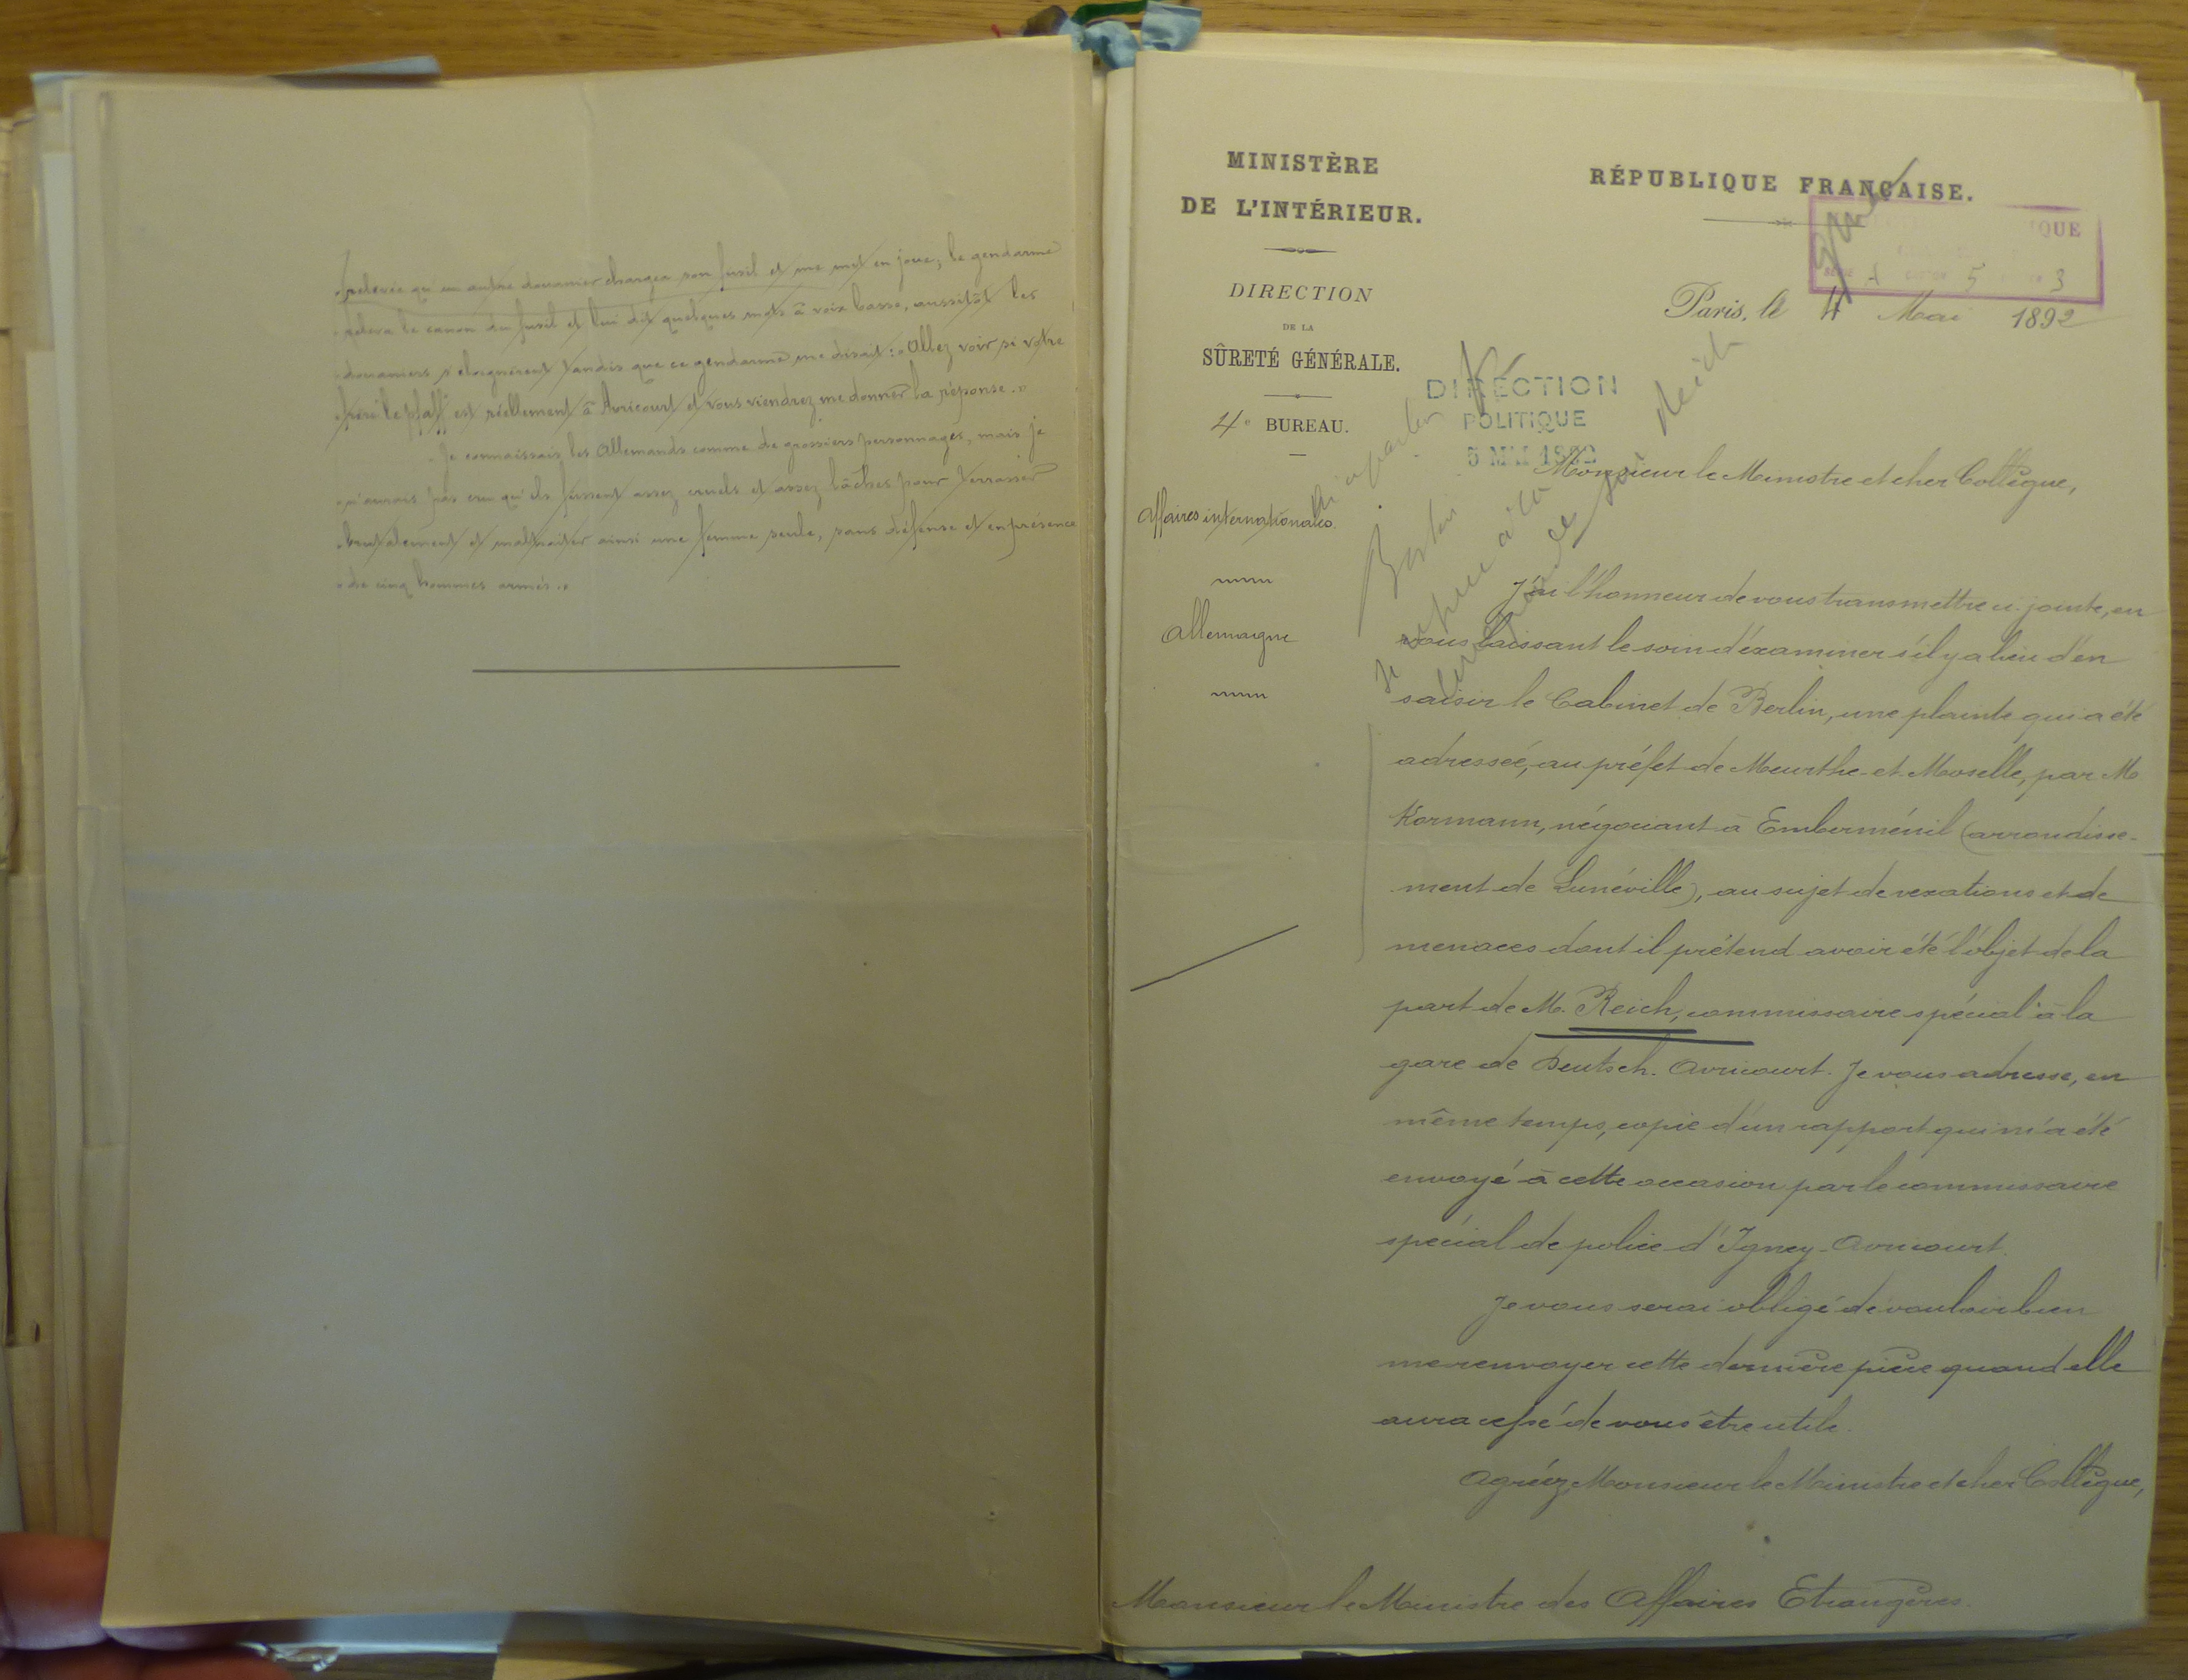 relevée qu'un autre douanier chargea son fusil et me mit en joue; le gendarme
releva le canon du fusil et lui dit quelques mots à voix basse, aussitôt les
douaniers s'éloignèrent tandis que ce gendarme me disait: "Allez voir si votre
frère le pfaff est réellement à Avricourt et vous viendrez me donner la réponse."
Je connaissais les Allemands comme de grossiers personnages, mais je
n'aurais pas cru qu'ils fussent assez cruels et assez lâches pour terrasser
brutalement et maltraiter ainsi une femme seule, sans défense et en présence
de cinq hommes armés."
MINISTÈRE
DE L'INTÉRIEUR.
DIRECTION
DE LA
SÛRETÉ GÉNÉRALE.
4e BUREAU.
Affaires internationales
Allemagne
RÉPUBLIQUE FRANÇAISE.
IQUE
A 5 3
Paris, le 4 Mai 1892
DIRECTION
POLITIQUE
5 MAI 1892
Berlin
Reich
Monsieur le Ministre et cher Collègue,
J'ai l'honneur de vous transmettre ci-jointe, en
vous laissant le soin d'éxaminer s'il y a lieu d'en
saisir le Cabinet de Berlin, une plainte qui a été
adressée, au préfet de Meurthe-et-Moselle, par M
Kormann, négociant à Emberménil (arrondisse-
ment de Lunéville), au sujet de vexations et de
menaces dont il prétend avoir été l'objet de la
part de M. Reich, commissaire spécial à la
gare de Deutsch-Avricourt. Je vous adresse, en
même temps, copie d'un rapport qui m'a été
envoyé à cette occasion par le commissaire
spécial de police d'Igney-Avricourt.
Je vous serai obligé de vouloir bien
me renvoyer cette dernière pièce quand elle
aura cessé de vous être utile.
Agréez, Monsieur le Ministre et cher Collègue,
Monsieur le Ministre des Affaires Etrangères.